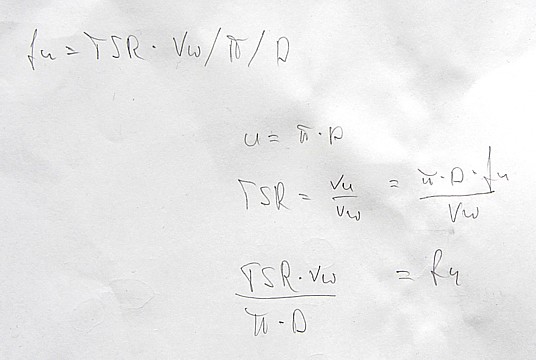 fu = TSR · Vw / π / D
u = π · D
TSR = Vu/Vw = π · D · fu/Vw
TSR · Vw/π · D = fu